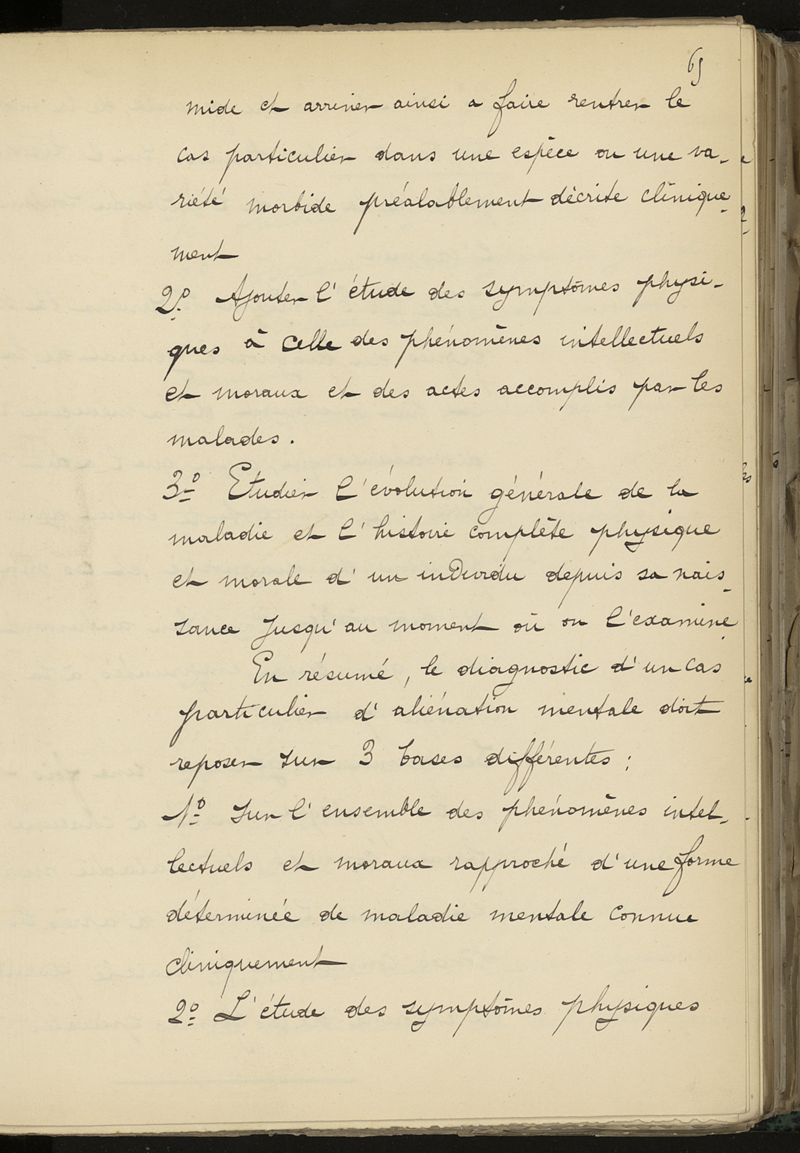 65
mide et arriver ainsi a faire rentrer le
cas particulier dans une espèce ou une va-
riété morbide préalablement décrite clinique-
ment
2º Ajouter l'étude des symptômes physi-
ques à celle des phénomènes intellectuels
et moraux et des actes accomplis par les
malades.
3º Etudier l'évolution générale de la
maladie et l'histoire complète physique
et morale d'un individu depuis sa nais-
sance jusqu'au moment où on l'examine.
En résumé, le diagnostic d'un cas
particulier d'aliénation mentale doit
reposer sur 3 bases différentes :
1º sur l'ensemble des phénomènes intel-
lectuels et moraux rapproché d'une forme
déterminée de maladie mentale connue
cliniquement
2º L'étude des symptômes physiques